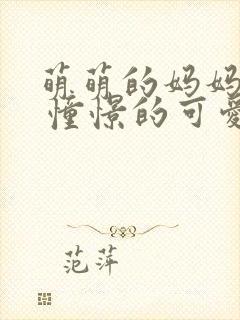 萌萌的妈妈
憧憬的可爱
范萍